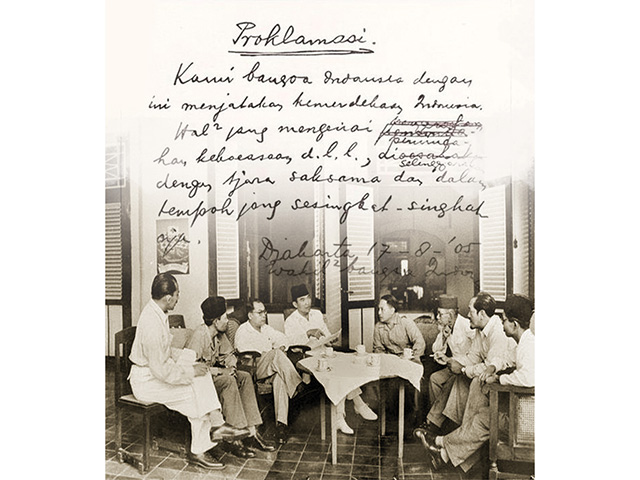 Proklamasi.
Kami bangsa Indonesia dengan
ini menjatakan kemerdekaan Indonesia.
Hal² jang mengenai peminda-
han kekoeasaan d.l.l.,
dengan tjara saksama dan dalam
tempoh jang sesingkat-singkat
nja.
Djakarta 17-8-'05
Wakil² bangsa Indon